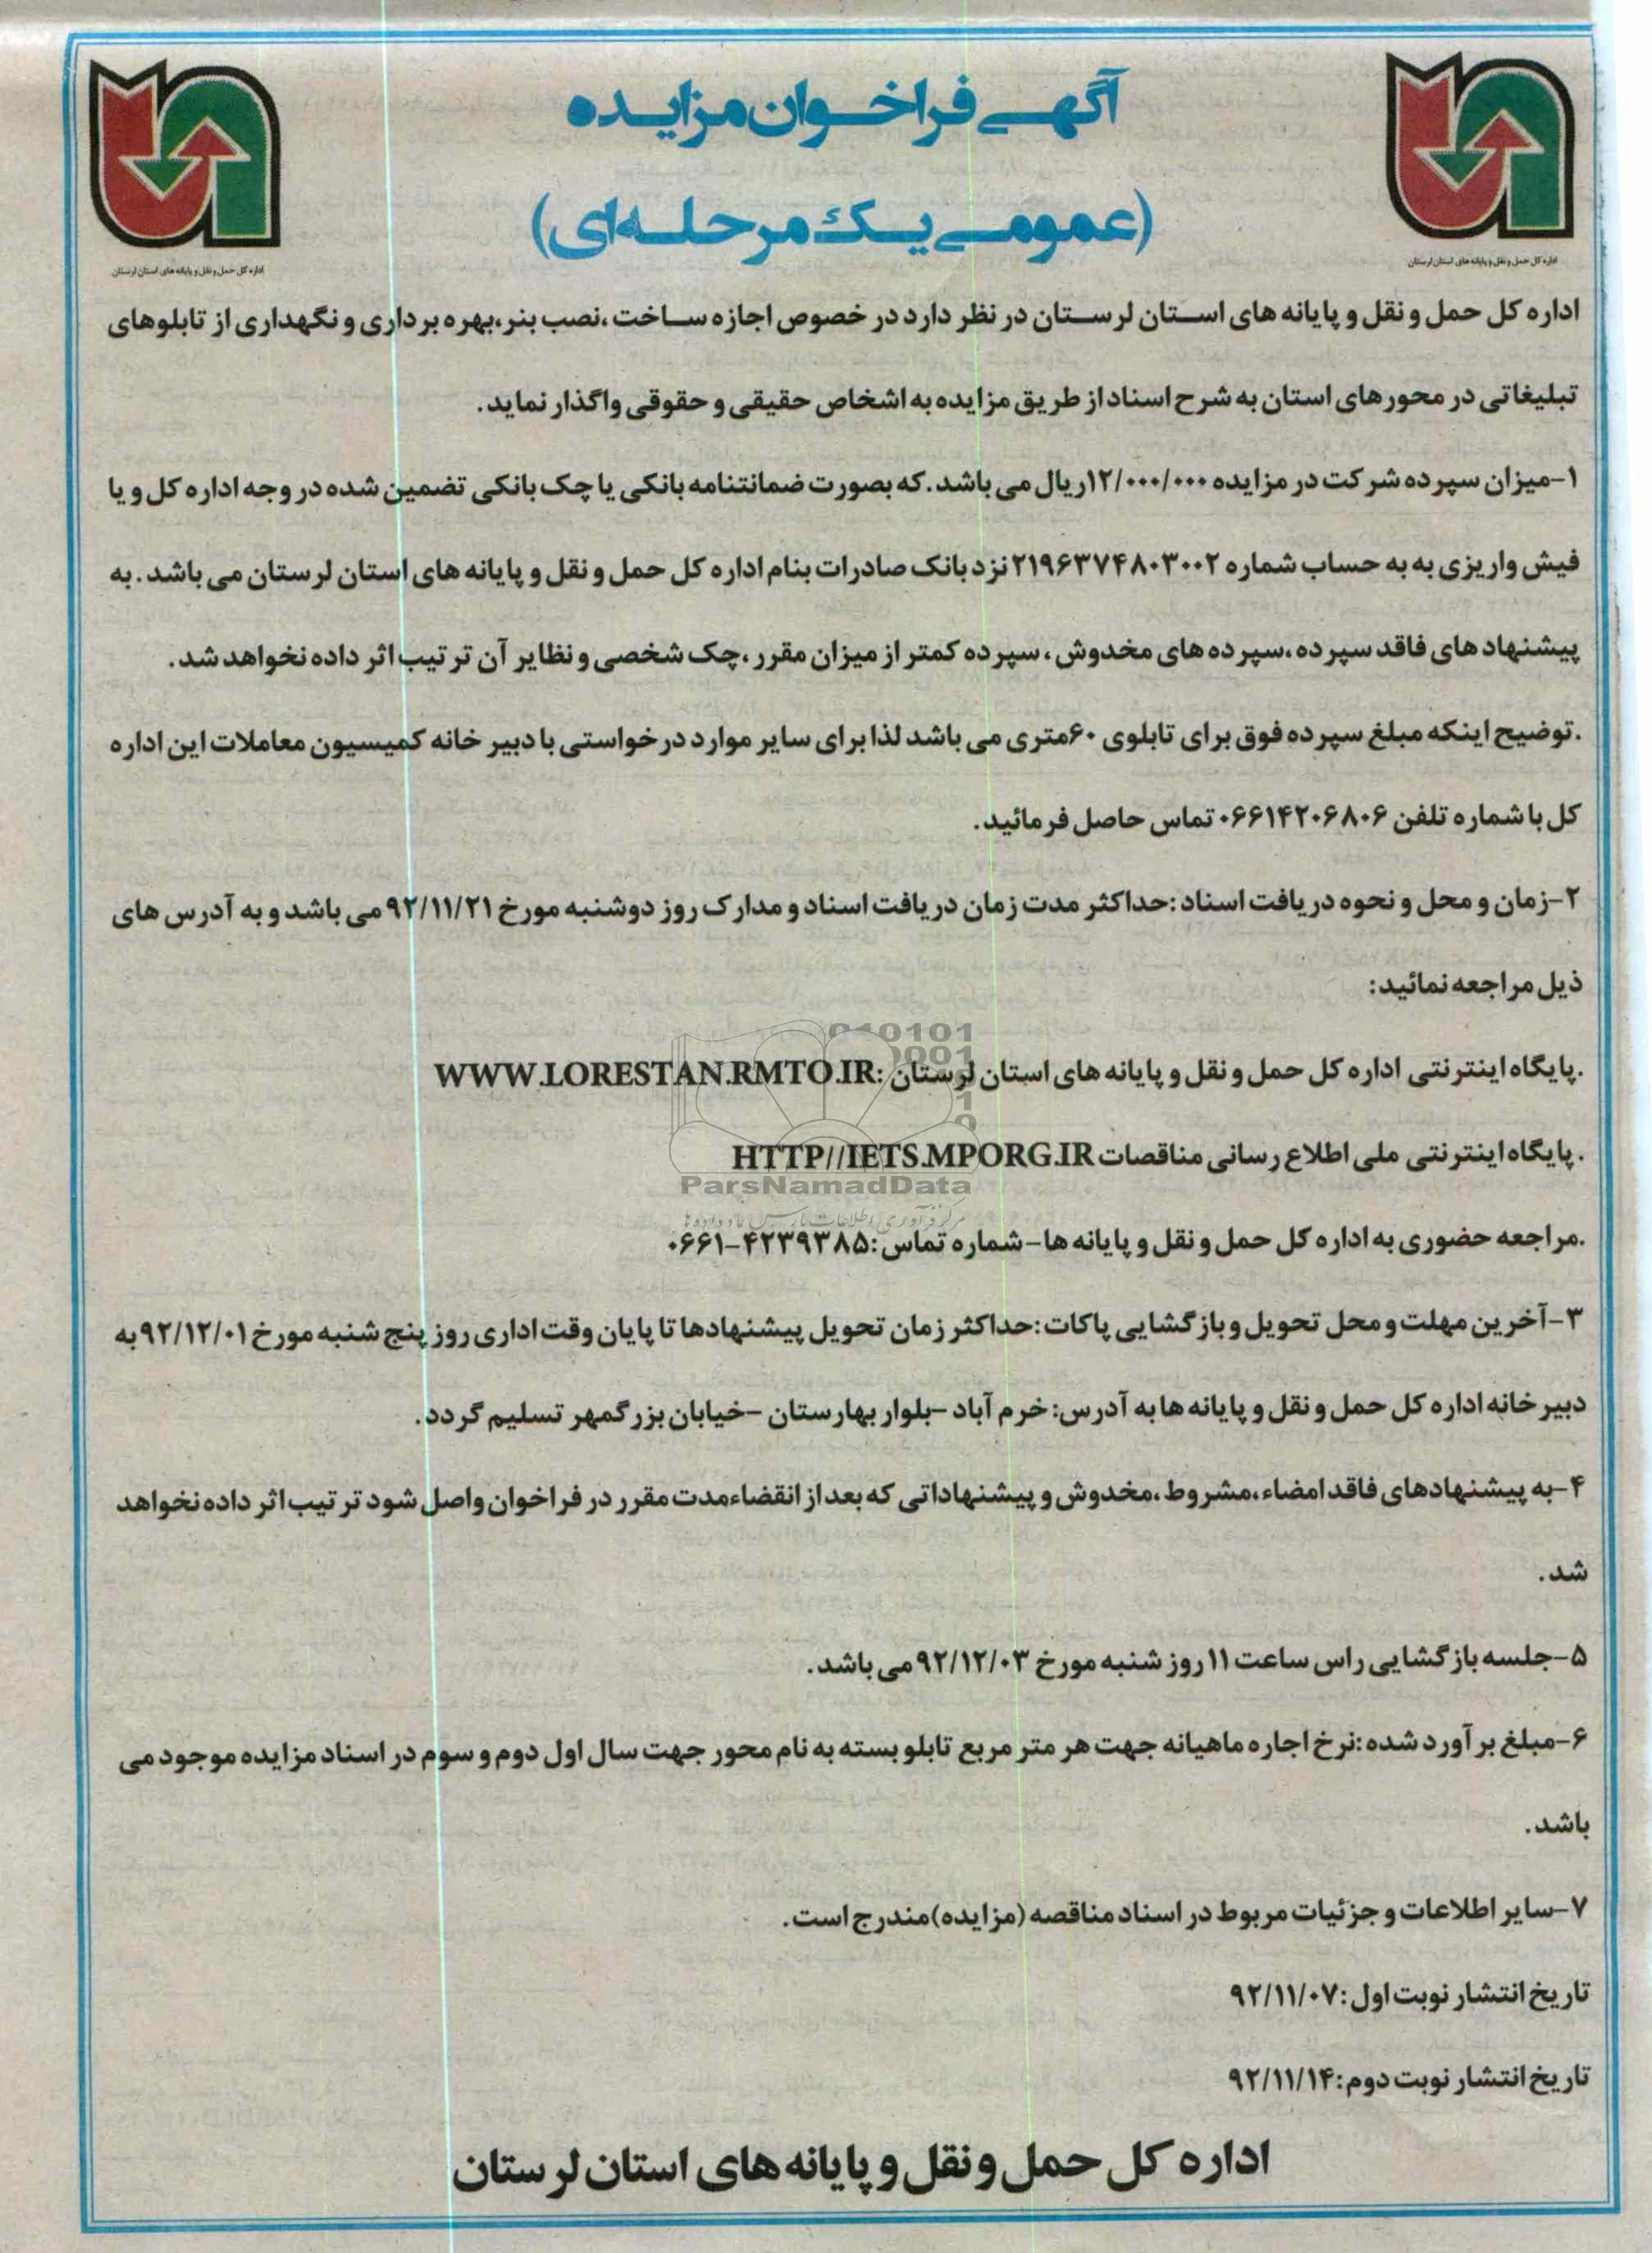 آگهی فراخوان مزایده
(عمومی یک مرحله‌ای)
اداره کل حمل و نقل و پایانه های استان لرستان
اداره کل حمل و نقل و پایانه های استان لرستان
اداره کل حمل و نقل و پایانه های استان لرستان در نظر دارد در خصوص اجازه ساخت ،نصب بنر،بهره برداری و نگهداری از تابلوهای
تبلیغاتی در محورهای استان به شرح اسناد از طریق مزایده به اشخاص حقیقی و حقوقی واگذار نماید.
۱-میزان سپرده شرکت در مزایده ۱۲/۰۰۰/۰۰۰ریال می باشد.که بصورت ضمانتنامه بانکی یا چک بانکی تضمین شده در وجه اداره کل و یا
فیش واریزی به به حساب شماره ۲۱۹۶۳۷۴۸۰۳۰۰۲ نزد بانک صادرات بنام اداره کل حمل و نقل و پایانه های استان لرستان می باشد. به
پیشنهاد های فاقد سپرده ،سپرده های مخدوش ، سپرده کمتر از میزان مقرر ،چک شخصی و نظایر آن ترتیب اثر داده نخواهد شد.
.توضیح اینکه مبلغ سپرده فوق برای تابلوی ۶۰متری می باشد لذا برای سایر موارد درخواستی با دبیر خانه کمیسیون معاملات این اداره
کل با شماره تلفن ۰۶۶۱۴۲۰۶۸۰۶ تماس حاصل فرمائید.
۲-زمان و محل و نحوه دریافت اسناد :حداکثر مدت زمان دریافت اسناد و مدارک روز دوشنبه مورخ ۹۲/۱۱/۲۱ می باشد و به آدرس های
ذیل مراجعه نمائید:
.پایگاه اینترنتی اداره کل حمل و نقل و پایانه های استان لرستان :WWW.LORESTAN.RMTO.IR
. پایگاه اینترنتی ملی اطلاع رسانی مناقصات HTTP//IETS.MPORG.IR
ParsNamadData
مرکز فرآوری اطلاعات پارس نماد داده ها
.مراجعه حضوری به اداره کل حمل و نقل و پایانه ها- شماره تماس :۴۲۳۹۳۸۵-۰۶۶۱
۳-آخرین مهلت و محل تحویل و بازگشایی پاکات :حداکثر زمان تحویل پیشنهادها تا پایان وقت اداری روز پنج شنبه مورخ ۹۲/۱۲/۰۱به
دبیر خانه اداره کل حمل و نقل و پایانه ها به آدرس: خرم آباد -بلوار بهارستان -خیابان بزرگمهر تسلیم گردد.
۴-به پیشنهادهای فاقد امضاء،مشروط ،مخدوش و پیشنهاداتی که بعد از انقضاءمدت مقرر در فراخوان واصل شود ترتیب اثر داده نخواهد
شد.
۵-جلسه بازگشایی راس ساعت ۱۱ روز شنبه مورخ ۹۲/۱۲/۰۳ می باشد.
۶-مبلغ برآورد شده :نرخ اجاره ماهیانه جهت هر متر مربع تابلو بسته به نام محور جهت سال اول دوم و سوم در اسناد مزایده موجود می
باشد.
۷-سایر اطلاعات و جزئیات مربوط در اسناد مناقصه (مزایده)مندرج است.
تاریخ انتشار نوبت اول :۹۲/۱۱/۰۷
تاریخ انتشار نوبت دوم:۹۲/۱۱/۱۴
اداره کل حمل و نقل و پایانه های استان لرستان